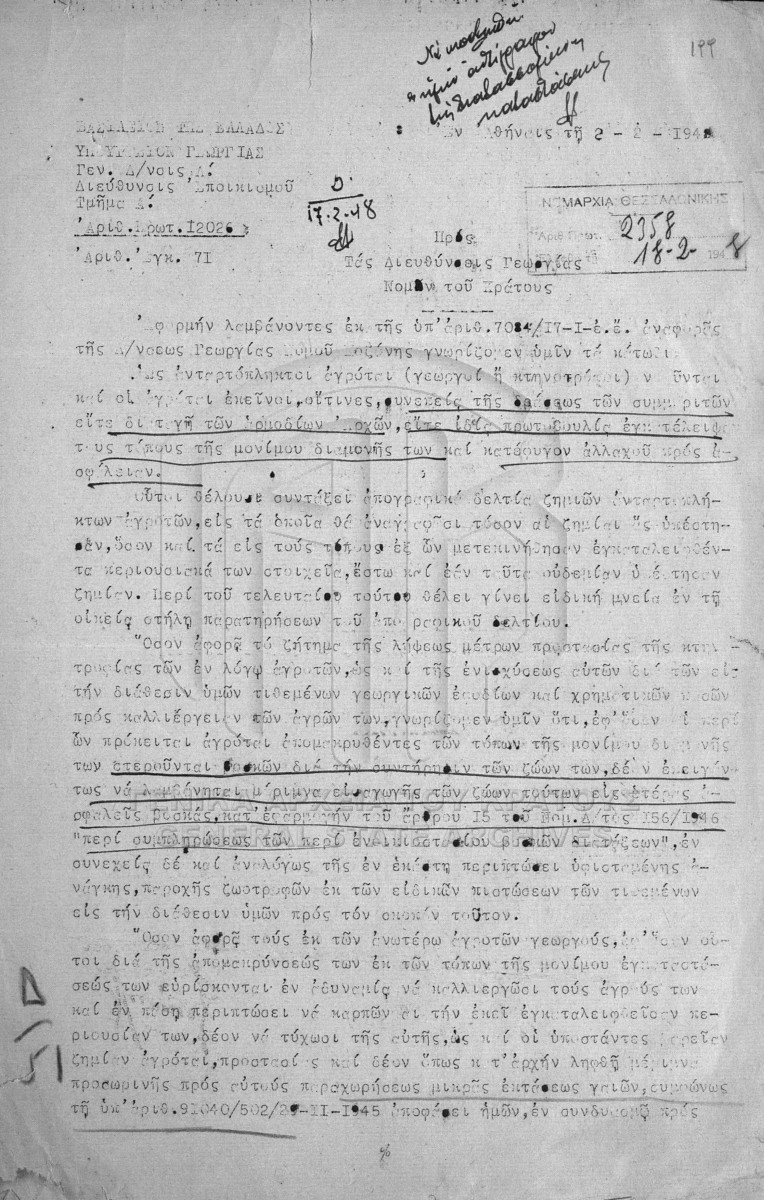 199
ΒΑΣΙΛΕΙΟΝ ΤΗΣ ΕΛΛΑΔΟΣ
Ἐν Ἀθήναις τῇ 2-2-1948
ΥΠΟΥΡΓΕΙΟΝ ΓΕΩΡΓΙΑΣ
Γεν. Δ/νσις Δ.
Διεύθυνσις Ἐποικισμοῦ
Τμῆμα Δ.
17-2-48
Ἀριθ.Πρωτ.I2026
ΝΟΜΑΡΧΙΑ ΘΕΣΣΑΛΟΝΙΚΗΣ
Ἀριθ.Πρωτ. 2358
18-2-1948
Πρός
Ἀριθ. Ἐγκ. 7I
Τάς Διευθύνσεις Γεωργίας
Νομῶν τοῦ Κράτους
Ἀφορμήν λαμβάνοντες ἐκ τῆς ὑπ'ἀριθ.7084/I7-I-ἐ.ἔ. ἀναφορᾶς
τῆς Δ/νσεως Γεωργίας Νομοῦ Κοζάνης γνωρίζομεν ὑμῖν τά κάτωθι
Ὡς ἀνταρτόπληκτοι ἀγρόται (γεωργοί ἤ κτηνοτρόφοι) νοοῦνται
καί οἱ ἀγρόται ἐκεῖνοι,οἵτινες,συνεπείᾳ τῆς δράσεως τῶν συμμοριτῶν
εἴτε διαταγῇ τῶν ἁρμοδίων Ἀρχῶν,εἴτε ἰδίᾳ πρωτοβουλίᾳ ἐγκατέλειψαν
τους τόπους τῆς μονίμου διαμονῆς των καί κατέφυγον ἀλλαχοῦ πρός ἀ-
σφάλειαν.
Οὗτοι θέλουσι συντάξει ἀπογραφικά δελτία ζημιῶν ἀνταρτοπλή-
κτων ἀγροτῶν,εἰς τά ὁποῖα θά ἀναγραφῶσι τόσον αἱ ζημίαι ἅς ὑπέστη-
σαν,ὅσον καί τά εἰς τούς τόπους ἐξ ὧν μετεκινήθησαν ἐγκαταλειφθέν-
τα περιουσιακά των στοιχεῖα,ἔστω καί ἐάν ταῦτα οὐδεμίαν ὑπέστησαν
ζημίαν. Περί τοῦ τελευταίου τούτου θέλει γίνει εἰδική μνεία ἐν τῇ
οἰκείᾳ στήλῃ παρατηρήσεων τοῦ ἀπογραφικοῦ δελτίου.
Ὅσον ἀφορᾷ τό ζήτημα τῆς λήψεως μέτρων προστασίας τῆς κτηνο-
τροφίας τῶν ἐν λόγῳ ἀγροτῶν,ὡς καί τῆς ἐνισχύσεως αὐτῶν διά τῶν εἰς
τήν διάθεσιν ὑμῶν τιθεμένων γεωργικῶν ἐφοδίων καί χρηματικῶν ποσῶν
πρός καλλιέργειαν τῶν ἀγρῶν των,γνωρίζομεν ὑμῖν ὅτι,ἐφ'ὅσον οἱ περί
ὧν πρόκειται ἀγρόται ἀπομακρυθέντες τῶν τόπων τῆς μονίμου διαμονῆς
των στεροῦνται βοσκῶν διά τήν συντήρησιν τῶν ζώων των,δέον ἐπειγόν-
τως νά λαμβάνηται μέριμνα εἰσαγωγῆς τῶν ζώων τούτων εἰς ἑτέρας ἀ-
σφαλεῖς βοσκάς,κατ'ἐφαρμογήν τοῦ ἄρθρου I5 τοῦ Νομ.Δ/τος I56/I946
"περί συμπληρώσεως τῶν περί ἐνοικιοστασίου βοσκῶν διατάξεων",ἐν
συνεχείᾳ δέ καί ἀναλόγως τῆς ἐν ἑκάστῃ περιπτώσει ὑφισταμένης ἀ-
νάγκης,παροχῆς ζωοτροφῶν ἐκ τῶν εἰδικῶν πιστώσεων τῶν τιθεμένων
εἰς τήν διάθεσιν ὑμῶν πρός τόν σκοπόν τοῦτον.
Ὅσον ἀφορᾷ τούς ἐκ τῶν ἀνωτέρω ἀγροτῶν γεωργούς,ἐφ'ὅσον οὗ-
τοι διά τῆς ἀπομακρύνσεώς των ἐκ τῶν τόπων τῆς μονίμου ἐγκαταστά-
σεώς των εὑρίσκονται ἐν ἀδυναμίᾳ νά καλλιεργῶσι τούς ἀγρούς των
καί ἐν πάσῃ περιπτώσει νά καρπῶνται τήν ἐκεῖ ἐγκαταλειφθεῖσαν πε-
ριουσίαν των,δέον νά τύχωσι τῆς αὐτῆς,ὡς καί οἱ ὑποστάντες βαρεῖαν
ζημίαν ἀγρόται,προστασίας καί δέον ὅπως κατ'ἀρχήν ληφθῇ μέριμνα
προσωρινῆς πρός αὐτούς παραχωρήσεως μικρᾶς ἐκτάσεως γαιῶν,συμφώνως
τῇ ὑπ'ἀριθ.9I040/502/29-II-I945 ἀποφάσει ἡμῶν,ἐν συνδυασμῷ πρός
%
ΓΕΝΙΚΑ ΑΡΧΕΙΑ ΤΟΥ ΚΡΑΤΟΥΣ
GENERAL STATE ARCHIVES